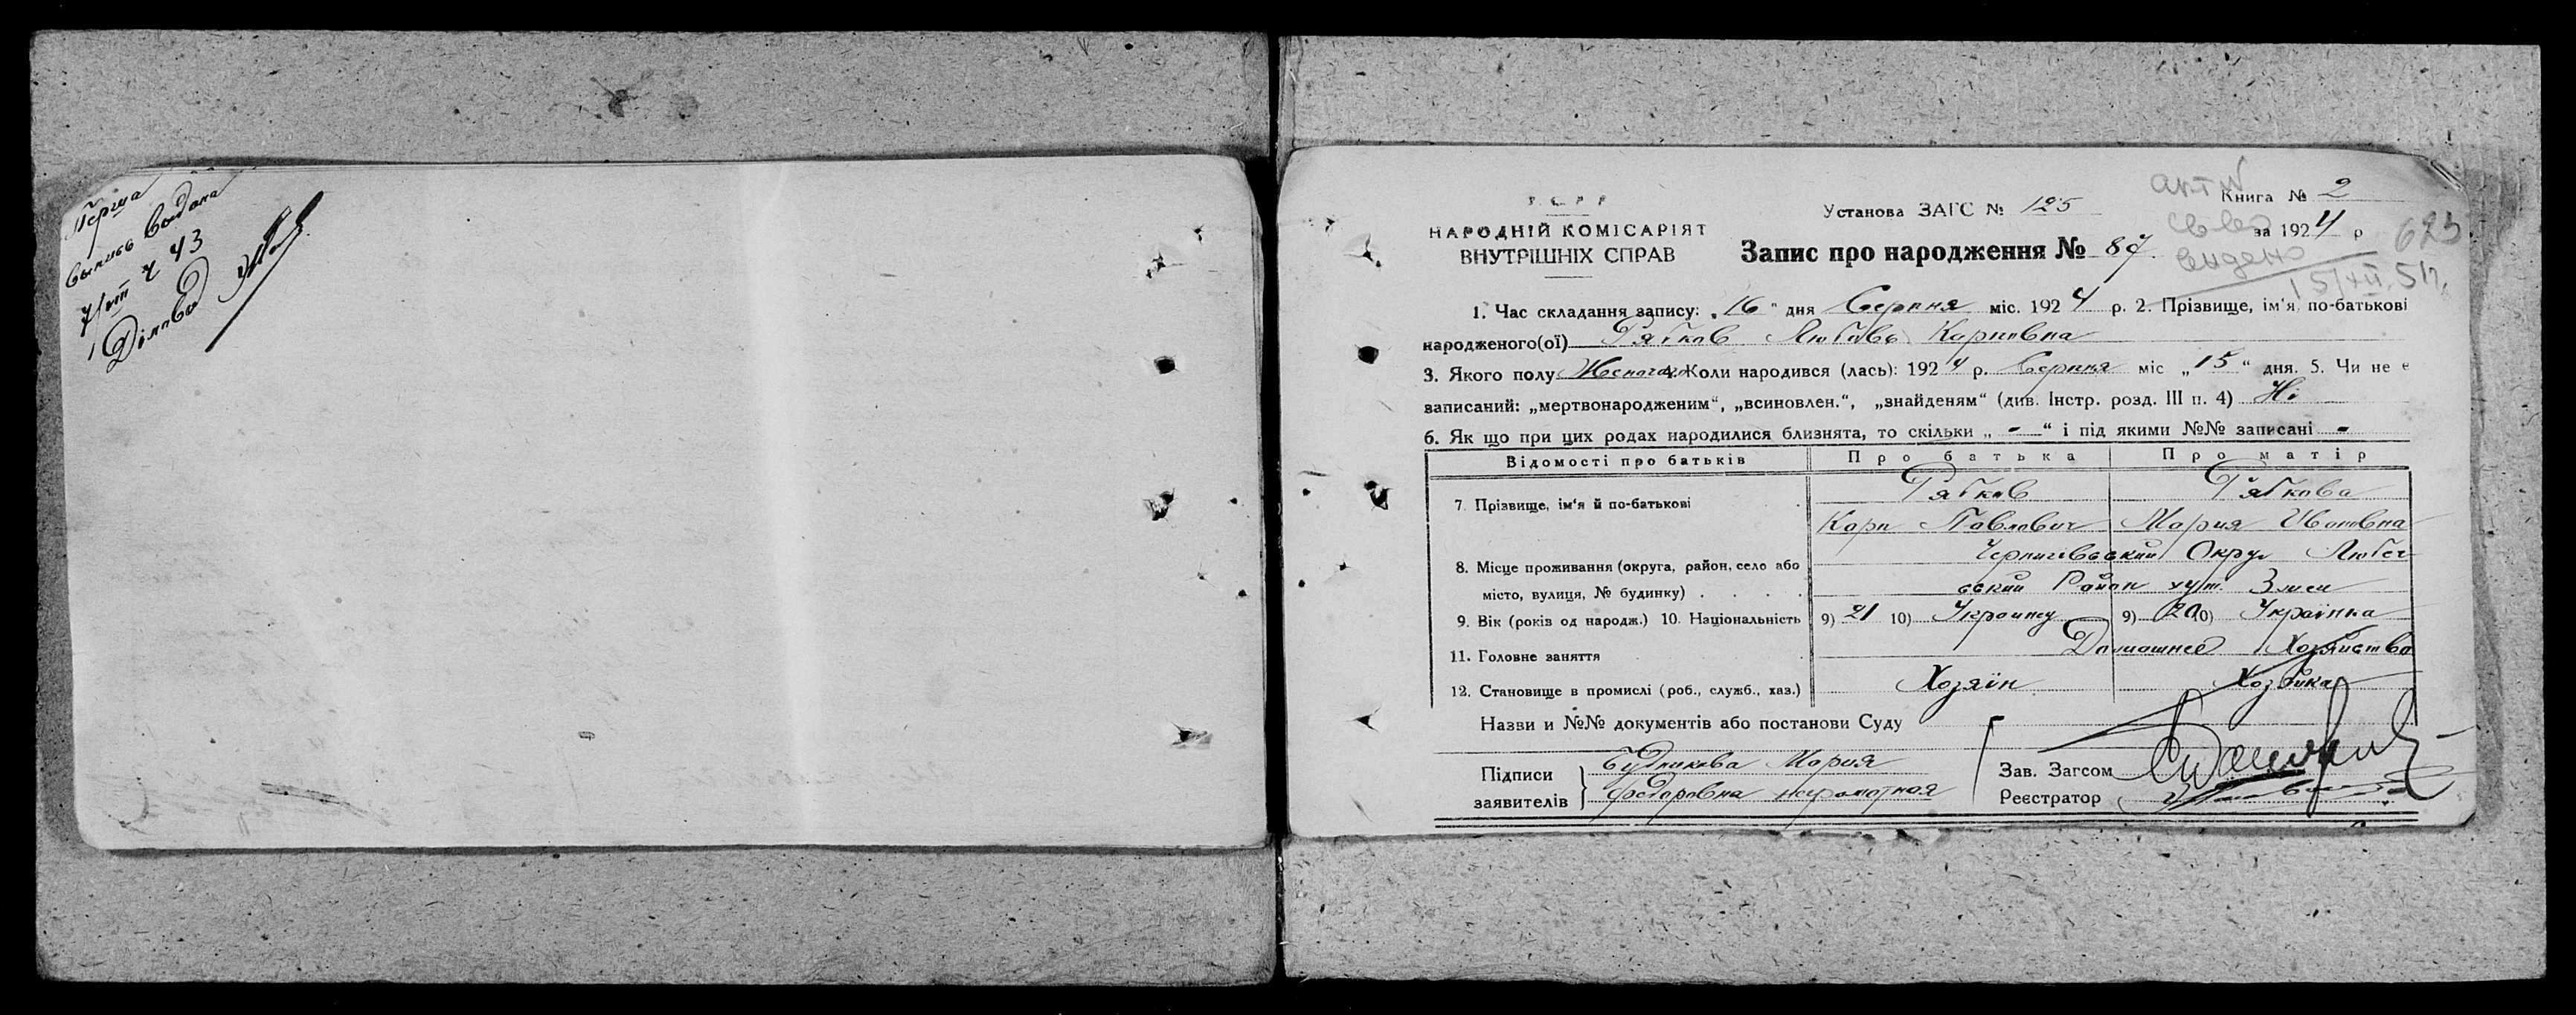 Перша
выпись выдана
7/VIII Ч 43
Діловод
У. С. Р. Р.
НАРОДНІЙ КОМІСАРІЯТ
ВНУТРІШНІХ СПРАВ
Установа ЗАГС № 125
Запис про народження № 87
акт №
Книга № 2
за 1924 р
623
15/XII 51г.
1. Час складання запису: „16“ дня Серпня міс. 1924 р. 2. Прізвище, ім'я, по-батькові
народженого(ої) Рябков Любовь Карповна
3. Якого полу Женочого 4. Коли народився (лась): 1924 р. Серпня міс „15“ дня. 5. Чи не є
записаний: „мертвонародженим“, „всиновлен.“, „знайденям“ (див. Інстр. розд. III п. 4) Ні
6. Як що при цих родах народилися близнята, то скільки „ - “ і під якими №№ записані -
Відомості про батьків Про батька Про матір
7. Прізвище, ім'я й по-батькові Рябков Рябкова
Карп Павлович Мария Ивановна
8. Місце проживання (округа, район, село або Чернигівський Округ Любеч
місто, вулиця, № будинку) ский Район хут. Змеи
9. Вік (років од народж.) 10. Національність 9) 21 10) Украинец 9) 20 10) Українка
11. Головне заняття Домашнее Хозяйство
12. Становище в промислі (роб., служб., хаз.) Хозяїн Хозяйка
Назви и №№ документів або постанови Суду
Підписи заявителів Будникова Мария
Федоровна неграмотная
Зав. Загсом
Реєстратор